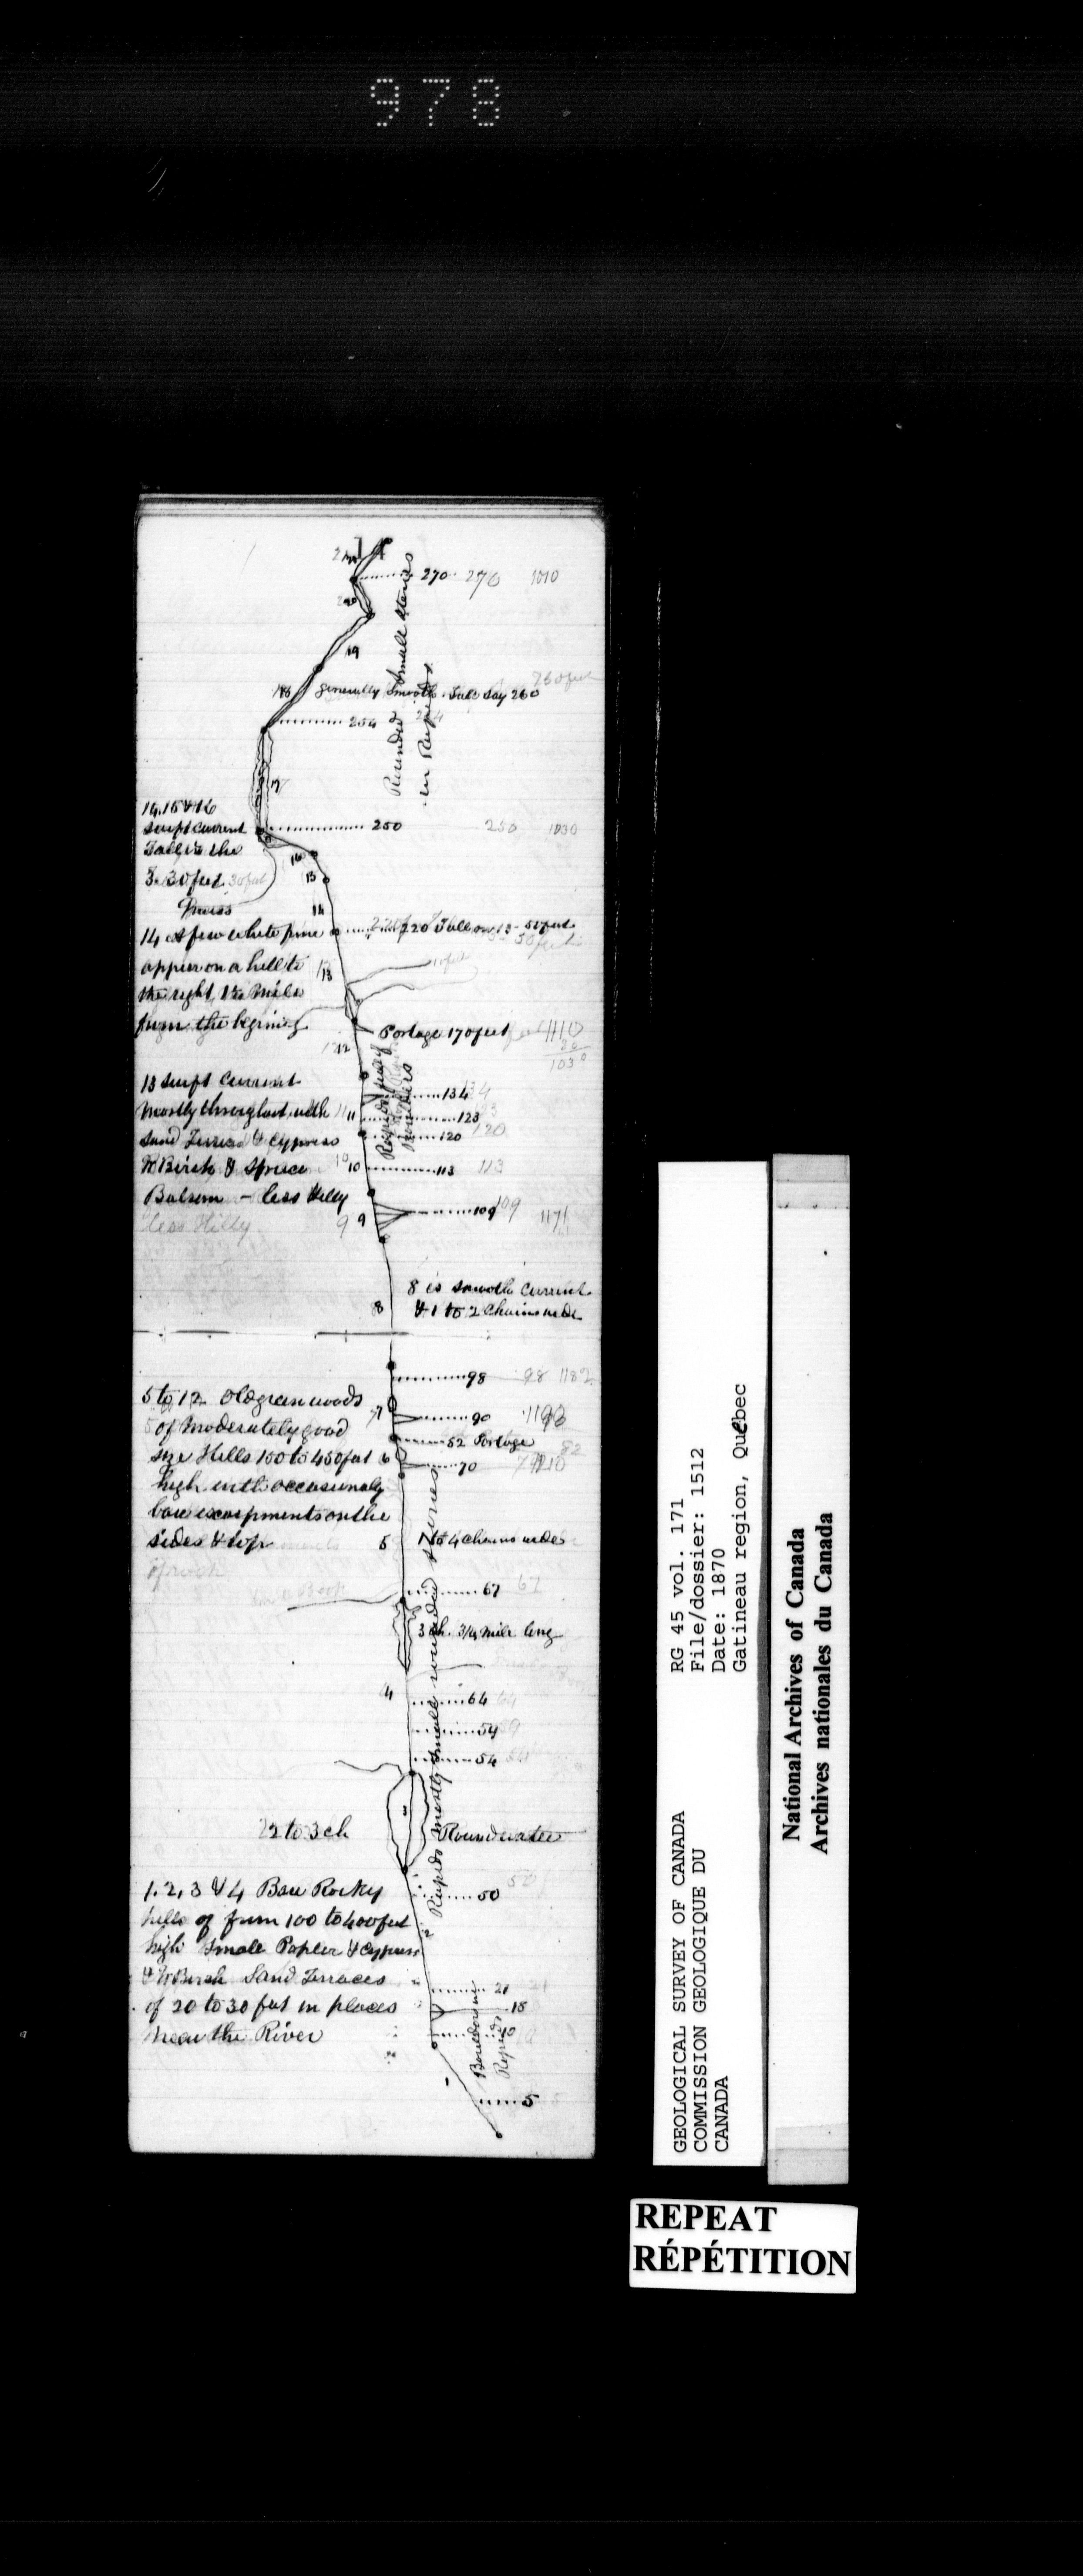 978
270 270 1010
19
Rounded Small Stones
in Rapids
260 feet
18 generally Smooth Fall Say 260
254
17
14. 15 & 16
swift current
250 250 1030
Fall in the
3. 30 feet 30 feet
16
15
14
14 A few white pine
220 Fall on 13 - 50 feet
50 feet
appear on a hell to
13
the right 1/2 mile
from the begining
Portage 170 feet
1110
1030
12
Rapids
Boulders
13 swift Current
134
mostly throughout with
11
123
sand Terrices & Cypress
120 120
W Birch & Spruce
10
113 113
Balsam - less Hilly
109 109 1171
less Hilly
9 9
8 is smooth Current
8
& 1 to 2 Chains wide
98 98 1182
5 to 12 Old green woods
7
90
of Moderately good
52 Portage 82
size Hills 100 to 450 feet
6
70
high with occasionaly
bare escarpments on the
sides & top
5
to 4 chains wide
of rock
67 67
3 ch. 3/4 mile long
4
64 64
59 59
54 54
Rapids mostly small rounded stones
2 to 3 ch
Round water
1. 2, 3 & 4 Bare Rocky
50
50
hills of from 100 to 400 feet
2
high Small Popler & Cypress
& W Birch Sand Terraces
21 21
of 20 to 30 feet in places
15
near the River
10
Rapids
5
GEOLOGICAL SURVEY OF CANADA
COMMISSION GEOLOGIQUE DU
CANADA
RG 45 vol. 171
File/dossier: 1512
Date: 1870
Gatineau region, Québec
National Archives of Canada
Archives nationales du Canada
REPEAT
RÉPÉTITION